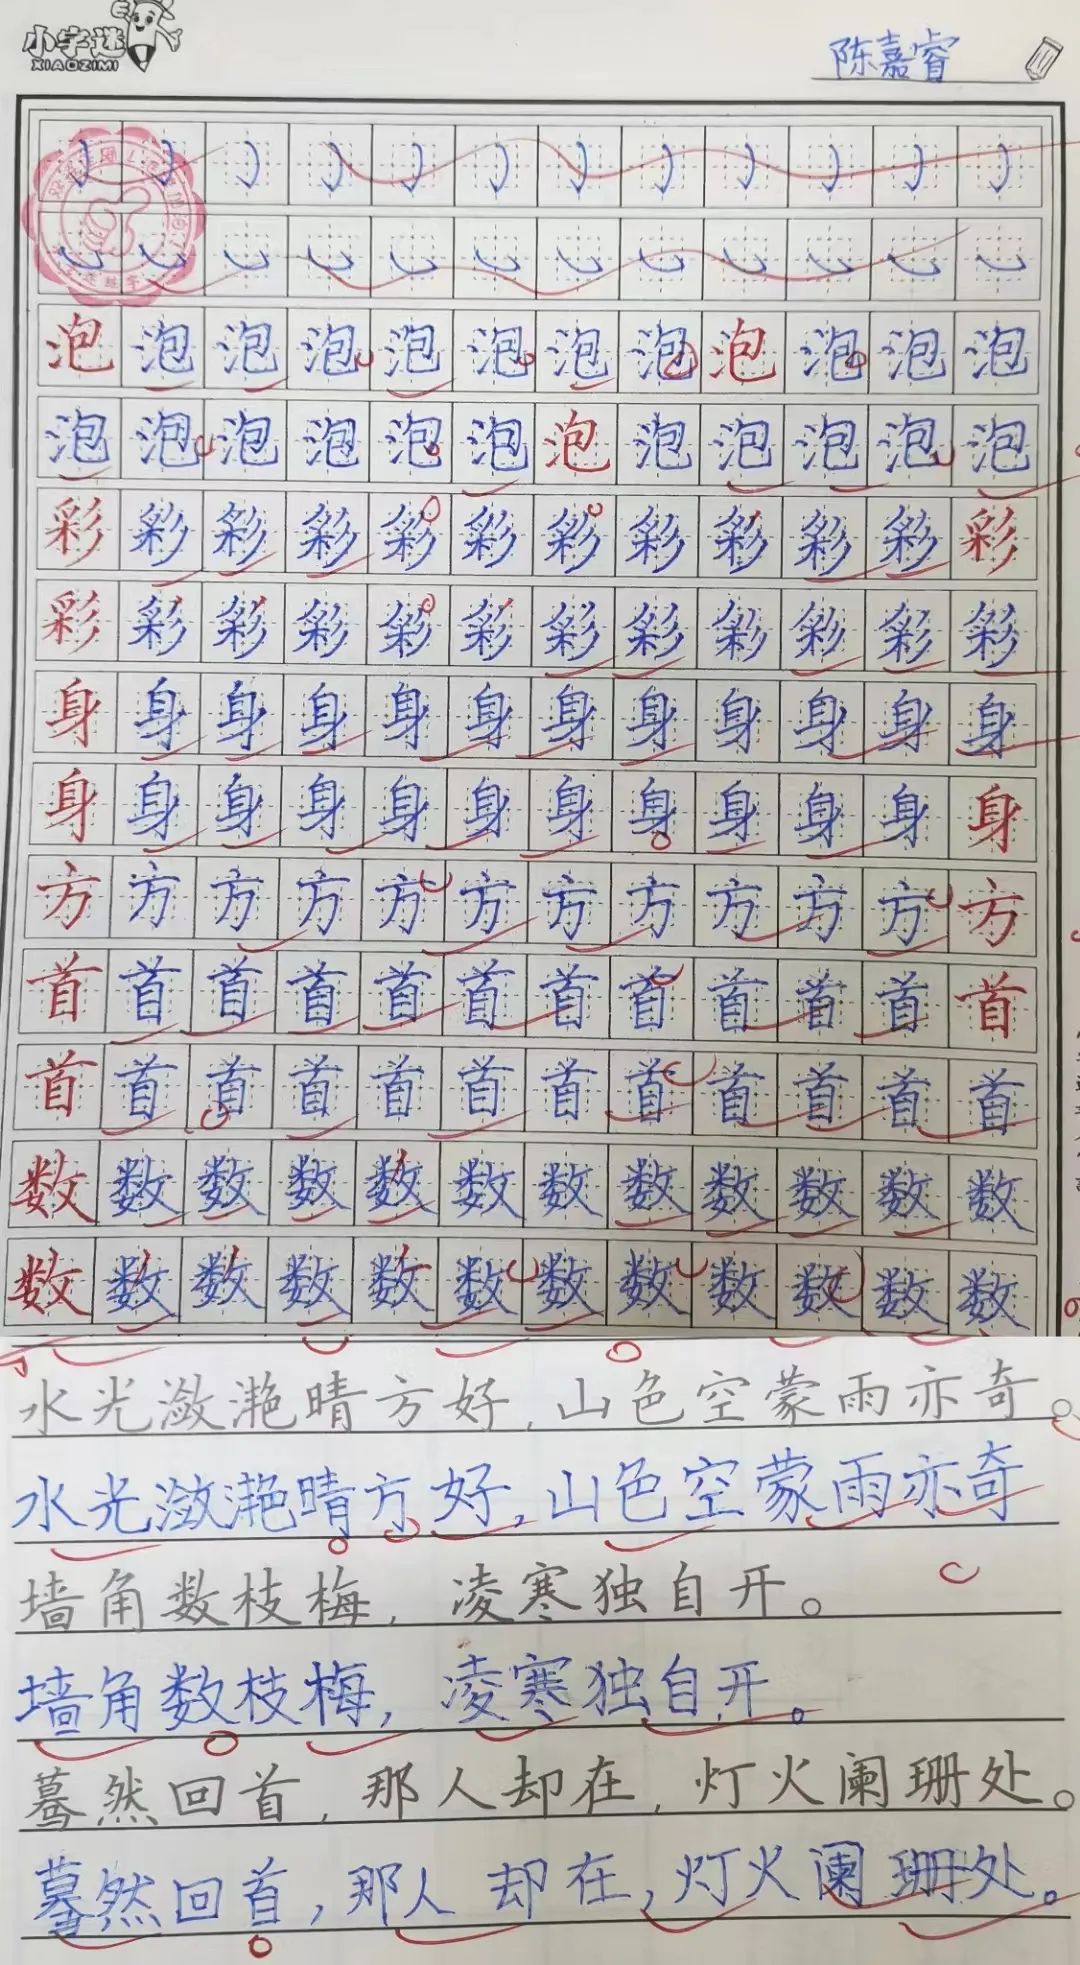 小字迷
XIAOZIMI
陈嘉睿
泡泡泡泡泡泡泡泡泡泡泡泡
泡泡泡泡泡泡泡泡泡泡泡泡
彩彩彩彩彩彩彩彩彩彩彩彩
彩彩彩彩彩彩彩彩彩彩彩彩
身身身身身身身身身身身身
身身身身身身身身身身身身
方方方方方方方方方方方方
首首首首首首首首首首首首
首首首首首首首首首首首首
数数数数数数数数数数数数
数数数数数数数数数数数数
水光潋滟晴方好,山色空蒙雨亦奇。
水光潋滟晴方好,山色空蒙雨亦奇
墙角数枝梅,凌寒独自开。
墙角数枝梅,凌寒独自开。
蓦然回首,那人却在,灯火阑珊处。
蓦然回首,那人却在,灯火阑珊处。